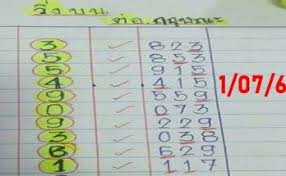 วิ่งบน
3 ✓ 823
5 ✓ 853
5 ✓ 915
4 ✓ 415
9 ✓ 559
0 ✓ 073
9 ✓ 229
3 ✓ 038
6 ✓ 629
1 ✓ 117
1/07/6